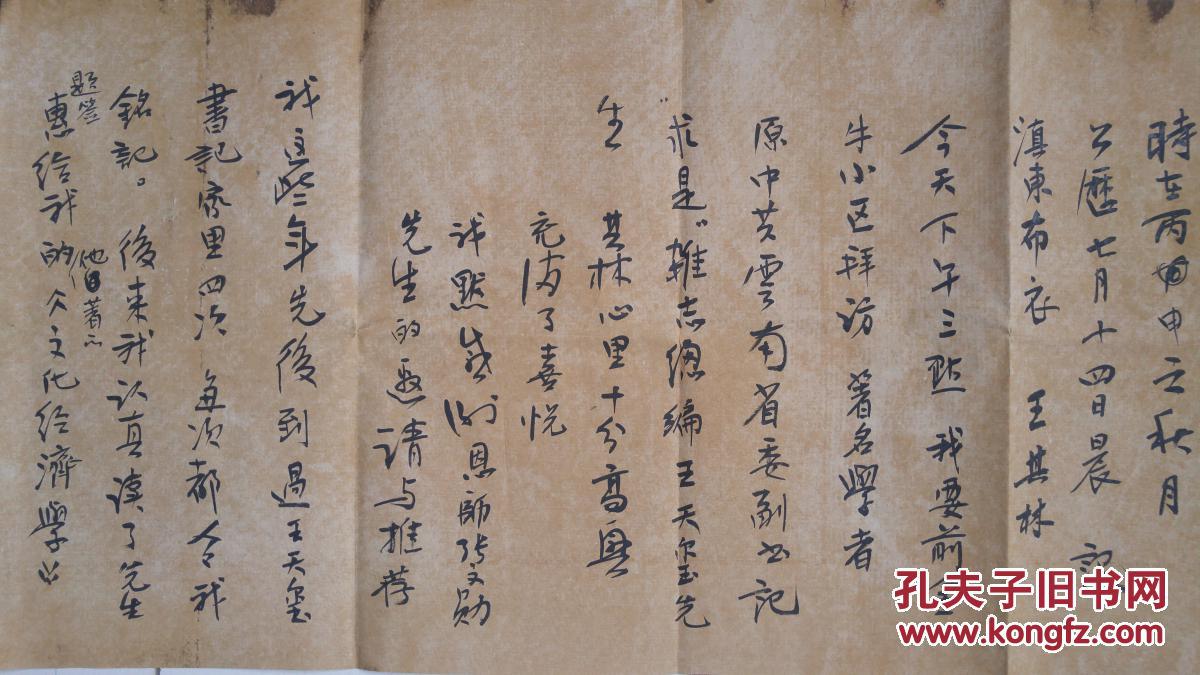 時在丙申之秋月
公歷七月十四日晨 記
滇東布衣 王其林
今天下午三點 我要前
牛小区拜访 著名學者
原中共雲南省委副书记
“求是”雜志總編王天玺先
生
其林心里十分高興
充满了喜悦
我默感谢恩師张文勋
先生的邀请与推荐
我這些年先後到過王天玺
書記家里四次 每次都令我
銘記。後来我认真读了先生
题签
惠给我的他著《人文化经濟學》
孔夫子旧书网
www.kongfz.com